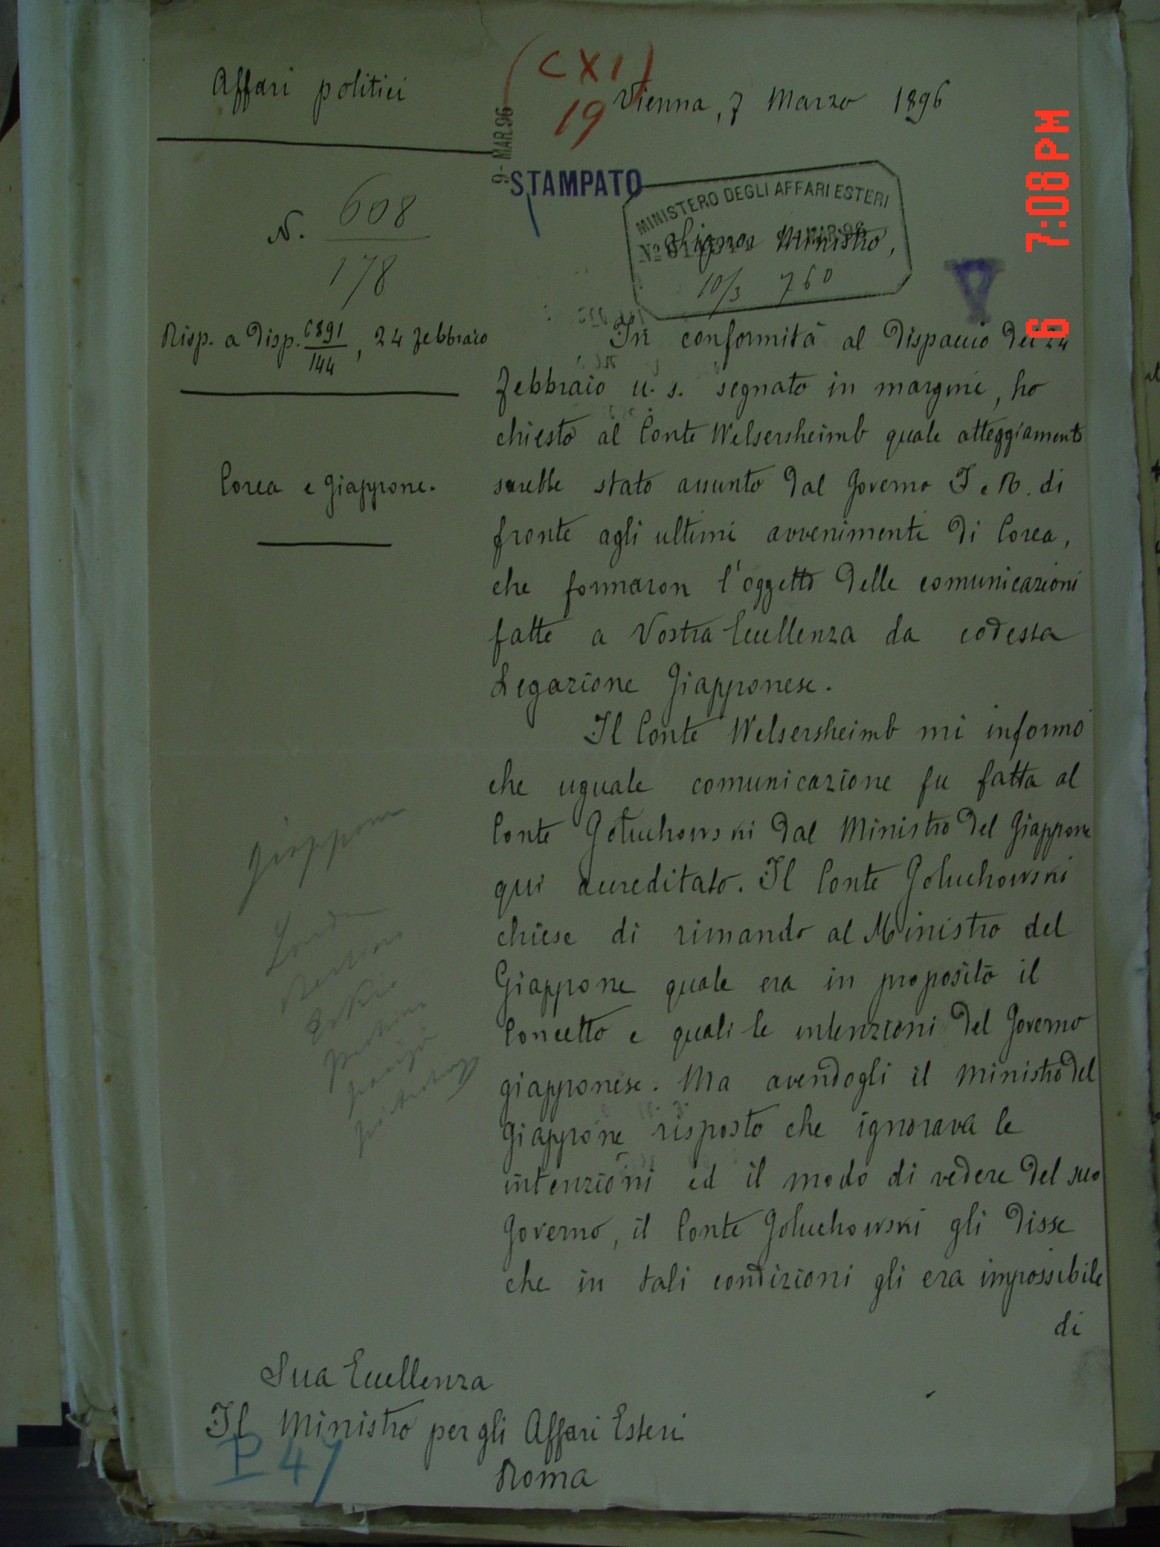 (CXI)
19
Affari politici
Vienna, 7 Marzo 1896
9-MAR.96
STAMPATO
N. 608
178
MINISTERO DEGLI AFFARI ESTERI
Signor Ministro,
10/3 760
V
6 7:08 PM
Risp. a Disp. 6891/144, 24 Febbraio
Corea e Giappone.
In conformità al Dispaccio del 24
Febbraio u. s. segnato in margine, ho
chiesto al Conte Welsersheimb quale atteggiamento
sarebbe stato assunto dal Governo I. e R. di
fronte agli ultimi avvenimenti di Corea,
che formaron l'oggetto delle comunicazioni
fatte a Vostra Eccellenza da codesta
Legazione Giapponese.
Il Conte Welsersheimb mi informò
che uguale comunicazione fu fatta al
Conte Goluchowski dal Ministro del Giappone
qui accreditato. Il Conte Goluchowski
chiese di rimando al Ministro del
Giappone quale era in proposito il
Concetto e quali le intenzioni del Governo
giapponese. Ma avendogli il Ministro del
Giappone risposto che ignorava le
intenzioni ed il modo di vedere del suo
Governo, il Conte Goluchowski gli disse
che in tali condizioni gli era impossibile
di
Giappone
Sua Eccellenza
Il Ministro per gli Affari Esteri
Roma
P 47